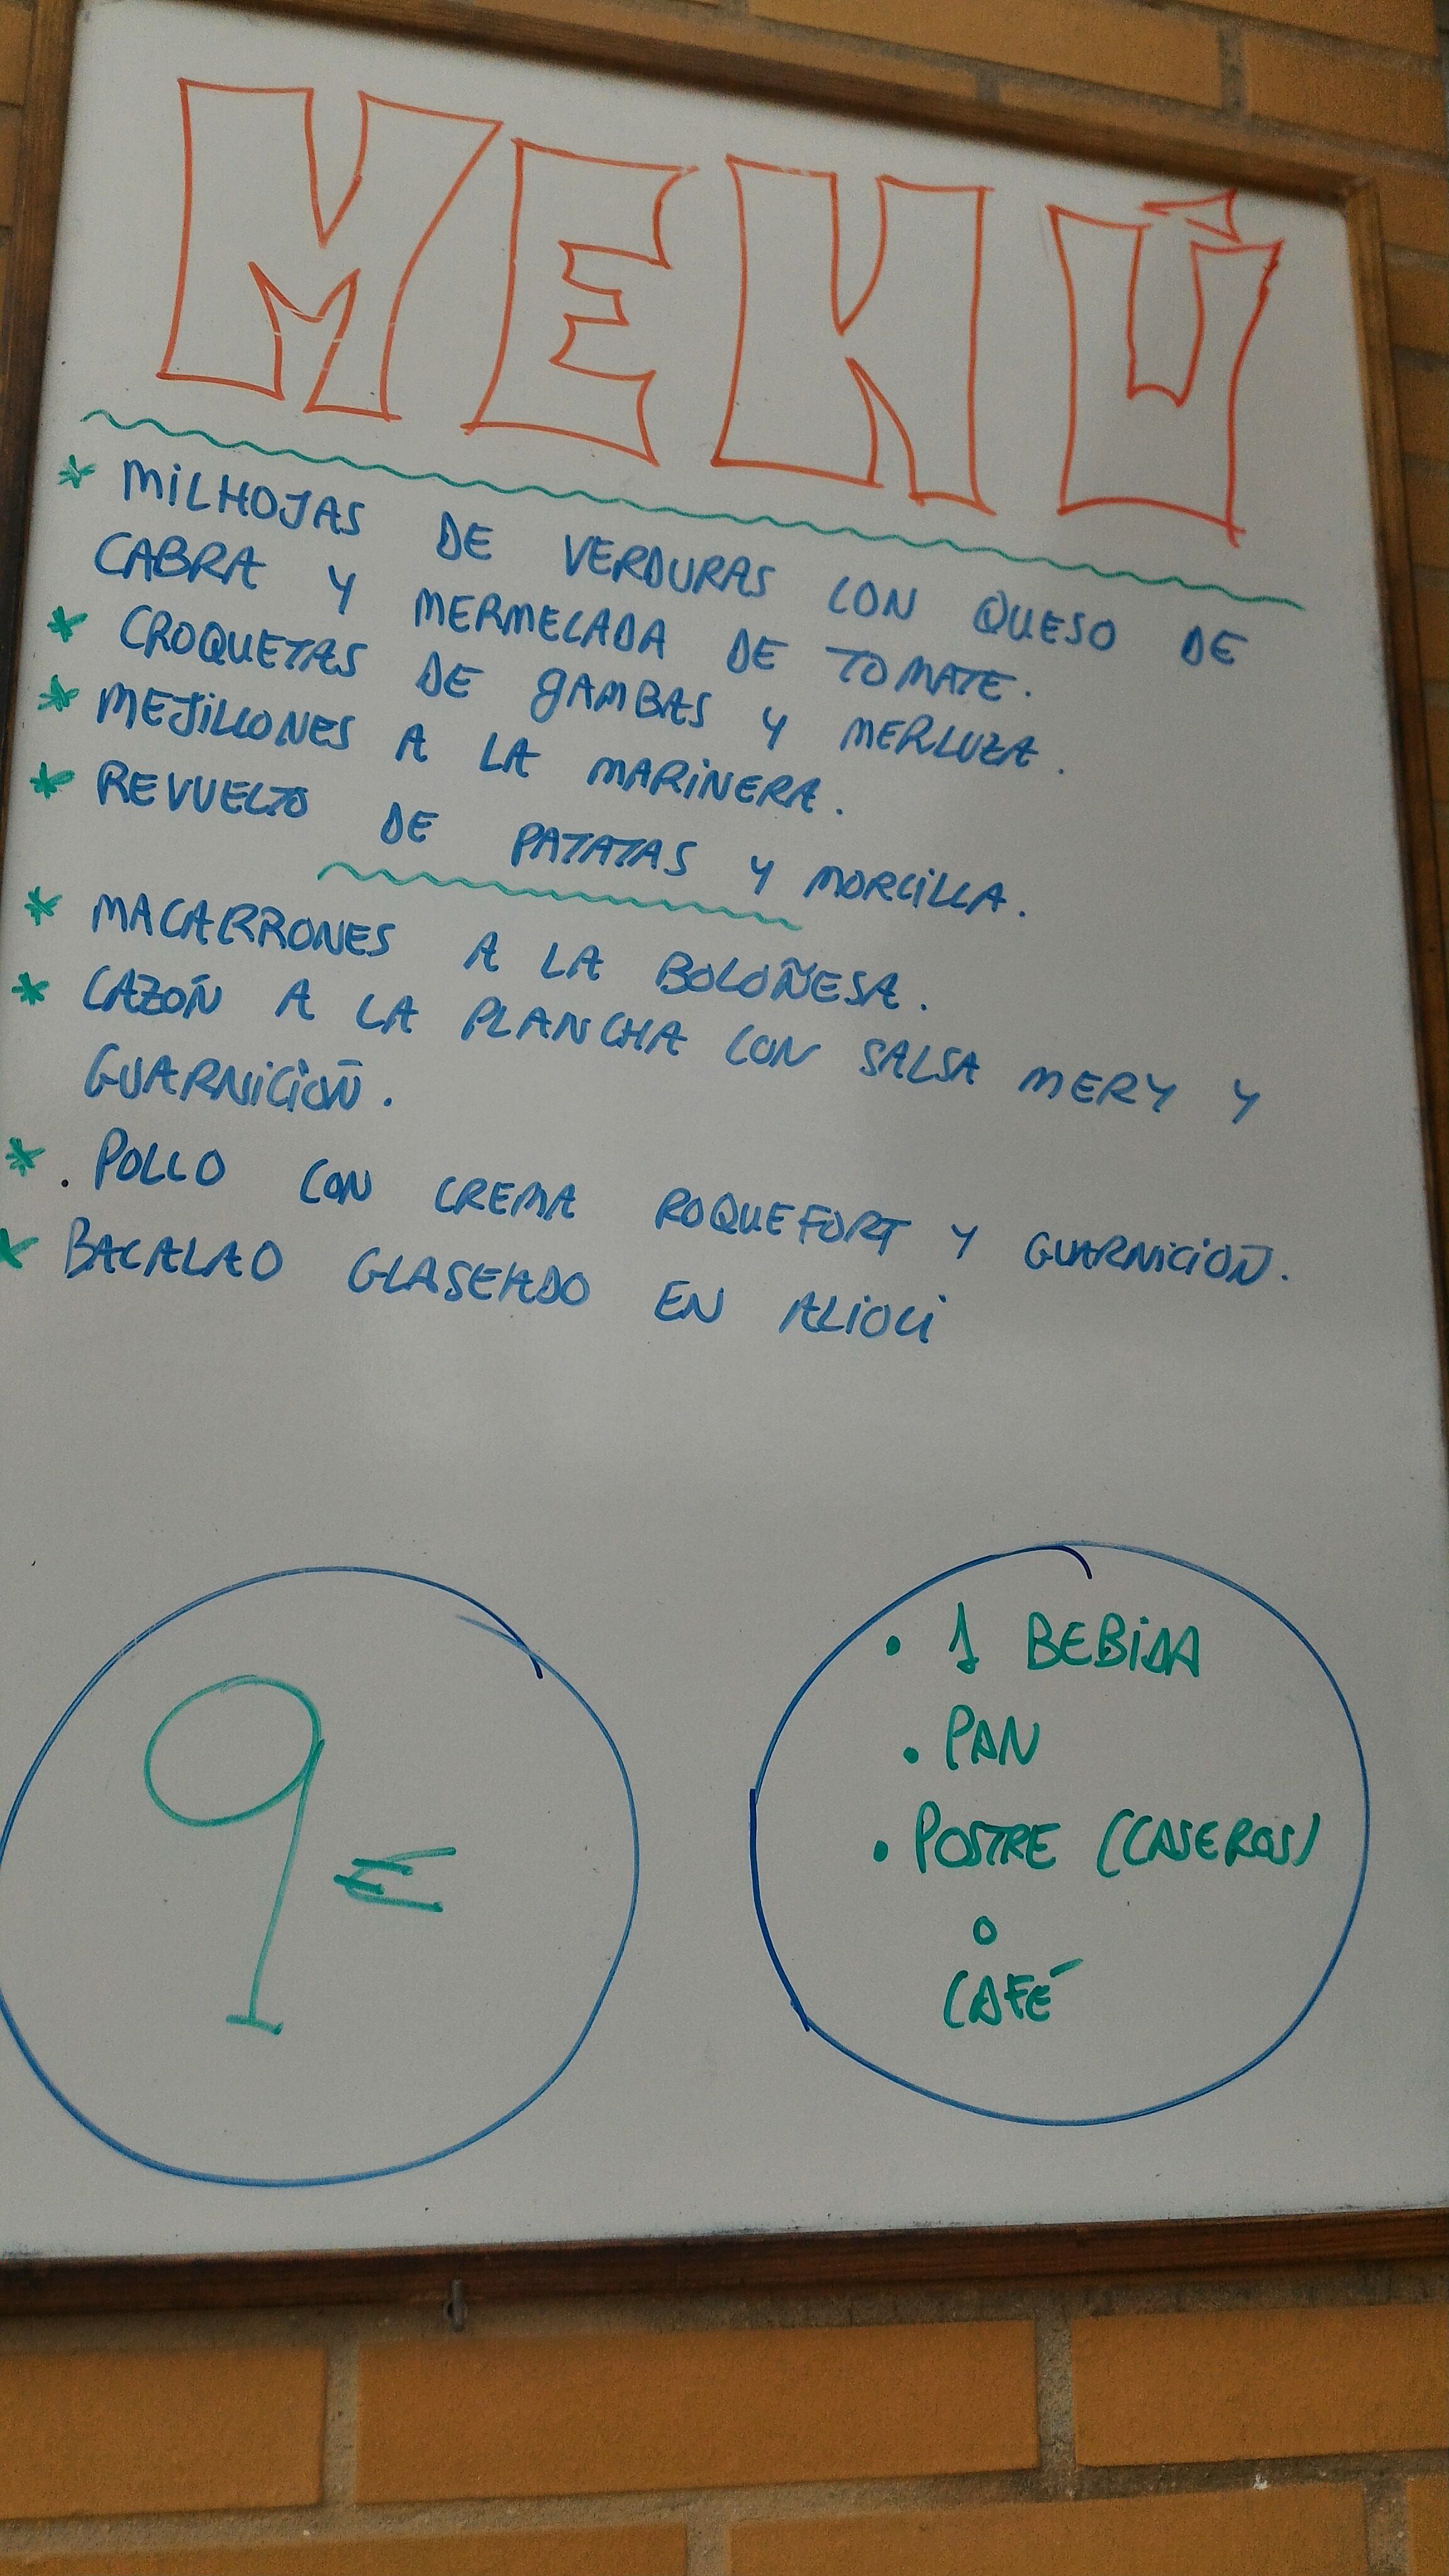 MENÚ
* MILHOJAS DE VERDURAS CON QUESO DE
CABRA Y MERMELADA DE TOMATE.
* CROQUETAS DE GAMBAS Y MERLUZA.
* MEJILLONES A LA MARINERA.
* REVUELTO DE PATATAS Y MORCILLA.
* MACARRONES A LA BOLOÑESA.
* CAZÓN A LA PLANCHA CON SALSA MERY Y
GUARNICIÓN.
* . POLLO CON CREMA ROQUEFORT Y GUARNICIÓN.
* BACALAO GLASEADO EN ALIOLI
9 €
• 1 BEBIDA
• PAN
• POSTRE (CASEROS)
O
CAFÉ